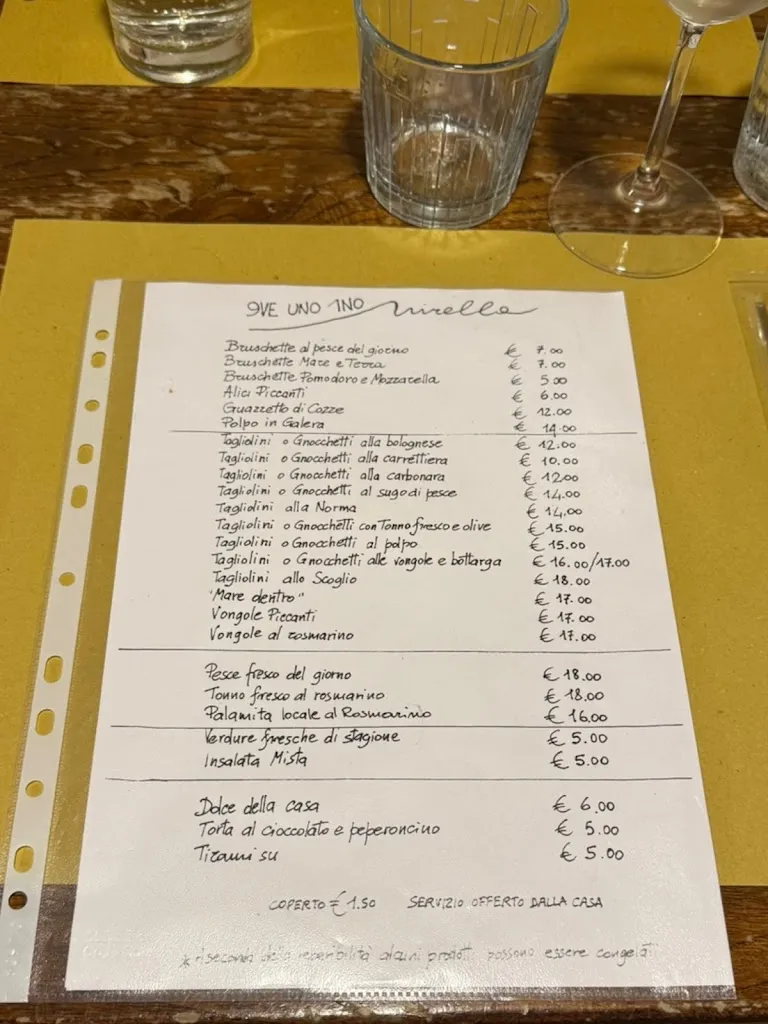 9VE UNO 1NO Mirella
Bruschette al pesce del giorno € 7.00
Bruschette Mare e Terra € 7.00
Bruschette Pomodoro e Mozzarella € 5.00
Alici Piccanti € 6.00
Guazzetto di Cozze € 12.00
Polpo in Galera € 14.00
Tagliolini o Gnocchetti alla bolognese € 12.00
Tagliolini o Gnocchetti alla carrettiera € 10.00
Tagliolini o Gnocchetti alla carbonara € 12.00
Tagliolini o Gnocchetti al sugo di pesce € 14.00
Tagliolini alla Norma € 14.00
Tagliolini o Gnocchetti con Tonno fresco e olive € 15.00
Tagliolini o Gnocchetti al polpo € 15.00
Tagliolini o Gnocchetti alle vongole e bottarga € 16.00/17.00
Tagliolini allo Scoglio € 18.00
"Mare dentro" € 17.00
Vongole Piccanti € 17.00
Vongole al rosmarino € 17.00
Pesce fresco del giorno € 18.00
Tonno fresco al rosmarino € 18.00
Palamita locale al Rosmarino € 16.00
Verdure fresche di stagione € 5.00
Insalata Mista € 5.00
Dolce della casa € 6.00
Torta al cioccolato e peperoncino € 5.00
Tirami su € 5.00
COPERTO € 1.50 SERVIZIO OFFERTO DALLA CASA
* A seconda della reperibilità alcuni prodotti possono essere congelati